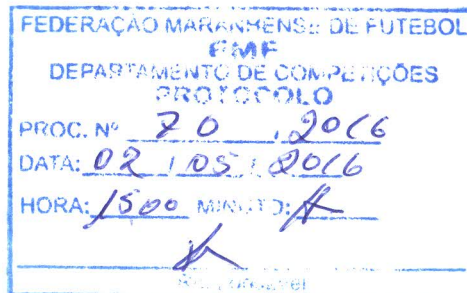 FEDERAÇÃO MARANHENSE DE FUTEBOL
FMF
DEPARTAMENTO DE COMPETIÇÕES
PROTOCOLO
PROC. Nº 70 / 2016
DATA: 02 / 05 / 2016
HORA: 1500 MINUTO:
Responsável